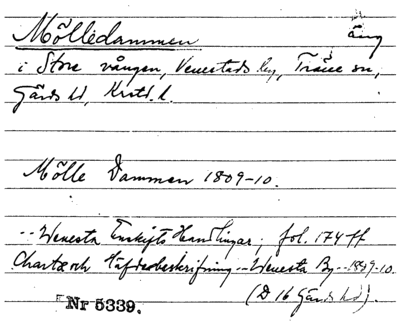 Mölledammen äng
i Stora vången, Venestads by, Träne sn,
Gärds hd, Krstd. l.
Mölle Dammen 1809-10.
-- Wenesta Enskifts Handlingar; fol. 174 ff
Charta och Häfdebeskrifning -- Wenesta By -- 1809-10.
(D 16 Gärds hd).
Nr 5339.